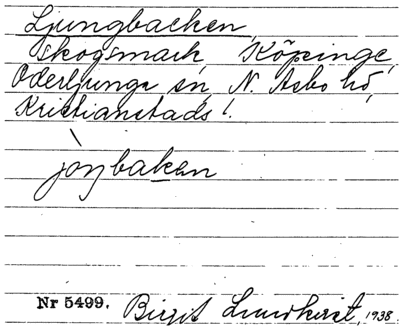 Ljungbacken,
skogsmark, Köpinge,
Oderljunga sn, N. Åsbo hd,
Kristianstads l.
jɔŋbakan
Nr 5499. Birgit Lundkvist, 1938.